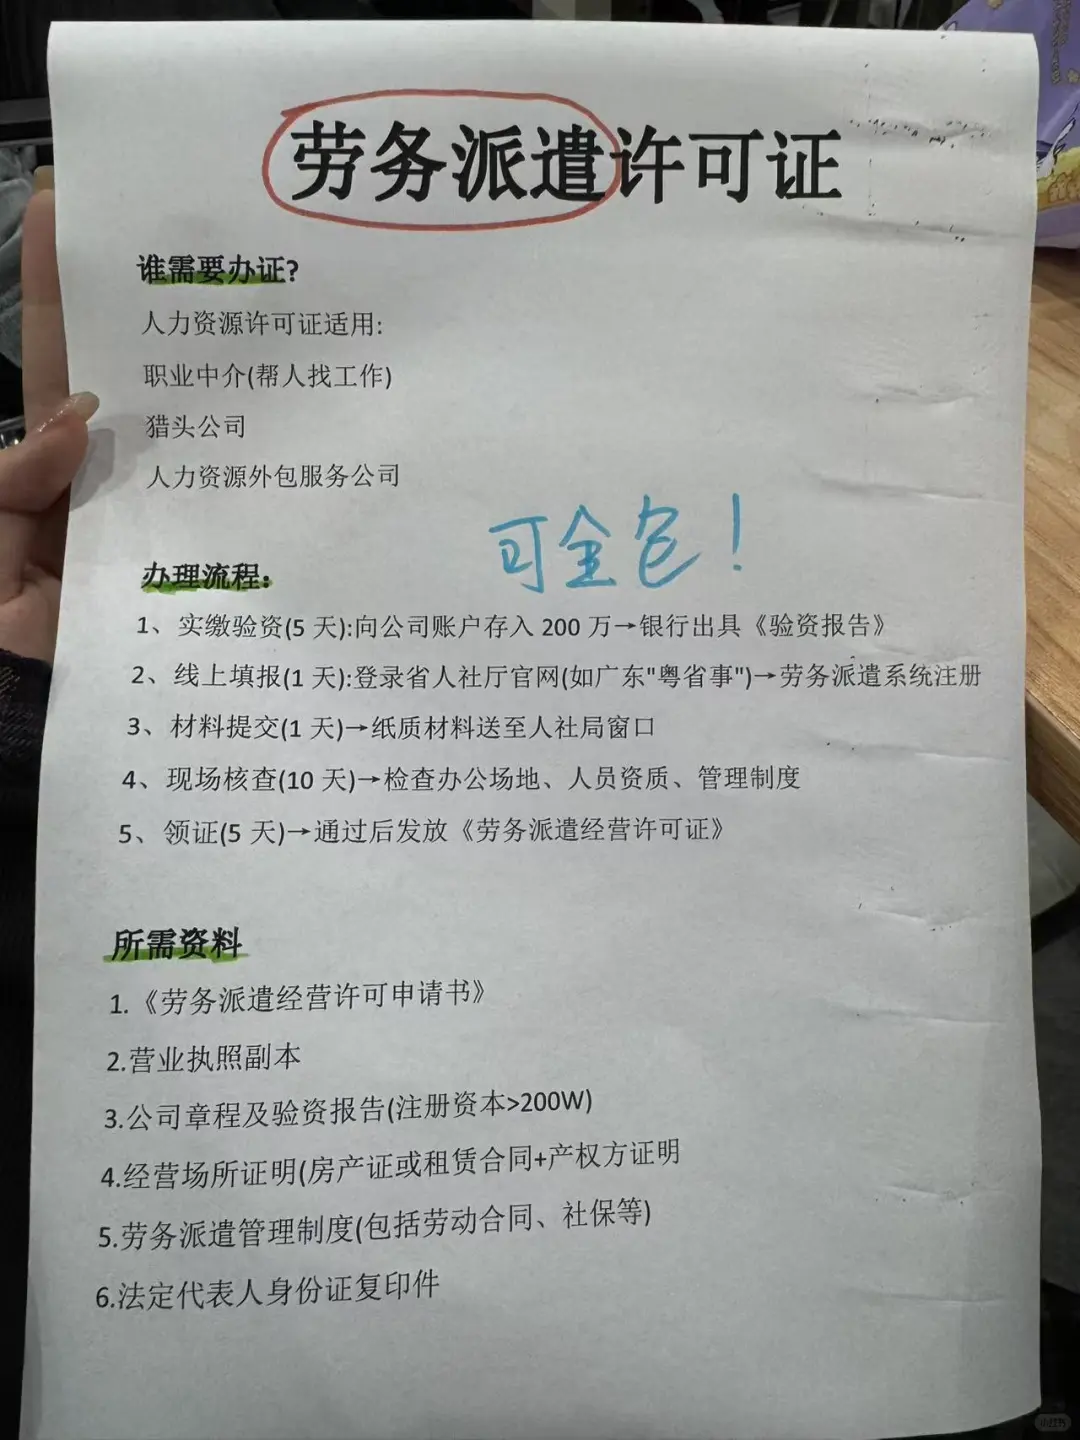 劳务派遣许可证
谁需要办证?
人力资源许可证适用:
职业中介(帮人找工作)
猎头公司
人力资源外包服务公司
可全包!
办理流程:
1、实缴验资(5 天):向公司账户存入 200 万→银行出具《验资报告》
2、线上填报(1 天):登录省人社厅官网(如广东"粤省事")→劳务派遣系统注册
3、材料提交(1 天)→纸质材料送至人社局窗口
4、现场核查(10 天)→检查办公场地、人员资质、管理制度
5、领证(5 天)→通过后发放《劳务派遣经营许可证》
所需资料
1.《劳务派遣经营许可申请书》
2.营业执照副本
3.公司章程及验资报告(注册资本>200W)
4.经营场所证明(房产证或租赁合同+产权方证明
5.劳务派遣管理制度(包括劳动合同、社保等)
6.法定代表人身份证复印件
小红书